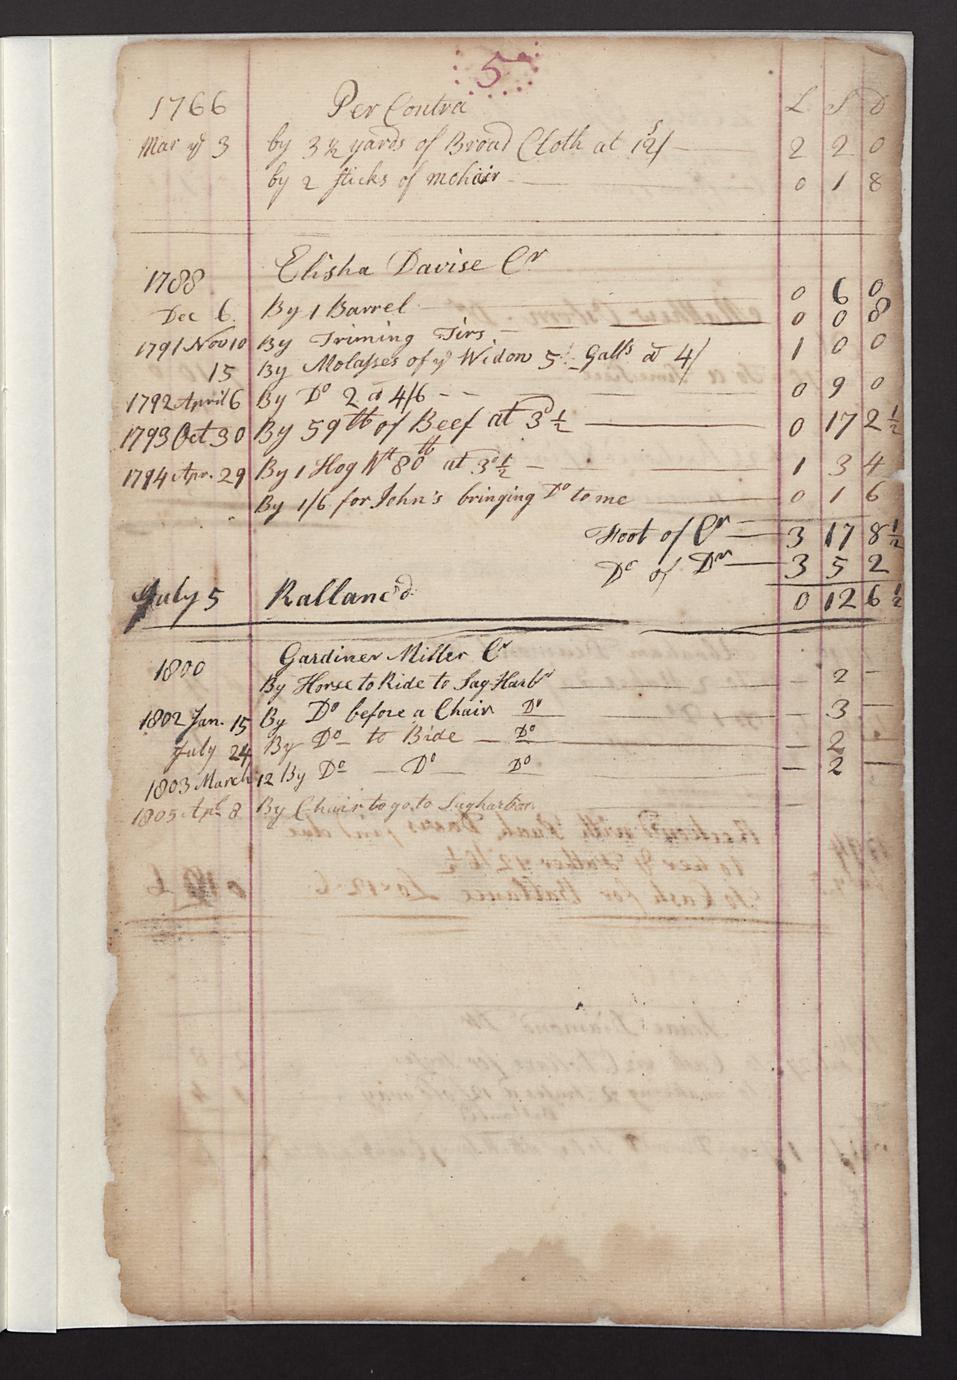 5
1766 Per Contra L S D
Mar ye 3 by 3 ½ yards of Broad Cloth at 12/ — 2 2 0
by 2 sticks of mohair — 0 1 8
1788 Elisha Davise Cr
Dec 6 By 1 Barrel 0 6 0
1791 Nov 10 By Triming — 0 0 8
15 By Molasses of ye Widow 5 Galls a 4/ 1 0 0
1792 April 6 By Do 2 a 4/6 - - 0 9 0
1793 Oct 30 By 59 lb of Beef at 3d ½ — 0 17 2 ½
1794 Apr. 29 By 1 Hog Wt 80 lb at 3d ½ — 1 3 4
By 1/6 for John's bringing Do to me — 0 1 6
Foot of Cr — 3 17 8 ½
Do of Dr — 3 5 2
July 5 Ballanc'd 0 12 6 ½
1800 Gardiner Miller Cr
By Horse to Ride to Sag Harbr — - 2 -
1802 Jan. 15 By Do before a Chair Do — - 3 -
July 24 By Do to Ride — Do — - 2 -
1803 March 12 By Do — Do — Do — - 2 -
1805 Apl 8 By Chair to go to Sagharbor —